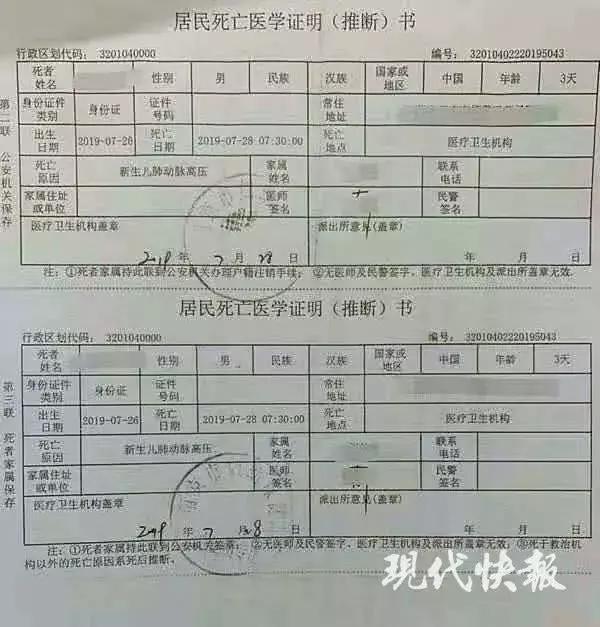 居民死亡医学证明（推断）书
行政区划代码： 3201040000 编号： 32010402220195043
死者姓名 性别 男 民族 汉族 国家或地区 中国 年龄 3天
身份证件类别 身份证 证件号码 常住地址
出生日期 2019-07-26 死亡日期 2019-07-28 07:30:00 死亡地点 医疗卫生机构
死亡原因 新生儿肺动脉高压 家属姓名 联系电话
家属住址或单位 医师签名 民警签名
医疗卫生机构盖章 派出所意见(盖章)
2019 年 7 月 28 日 年 月 日
第二联 公安机关保存
注：①死者家属持此联到公安机关办理户籍注销手续；②无医师及民警签字、医疗卫生机构及派出所盖章无效。
居民死亡医学证明（推断）书
行政区划代码： 3201040000 编号： 32010402220195043
死者姓名 性别 男 民族 汉族 国家或地区 中国 年龄 3天
身份证件类别 身份证 证件号码 常住地址
出生日期 2019-07-26 死亡日期 2019-07-28 07:30:00 死亡地点 医疗卫生机构
死亡原因 新生儿肺动脉高压 家属姓名 联系电话
家属住址或单位 医师签名 民警签名
医疗卫生机构盖章 派出所意见(盖章)
2019 年 7 月 28 日 年 月 日
第三联 死者家属保存
注：①死者家属持此联到公安机关签章；②无医师及民警签字、医疗卫生机构及派出所盖章无效；③死于救治机
构以外的死亡原因系死后推断。
现代快報